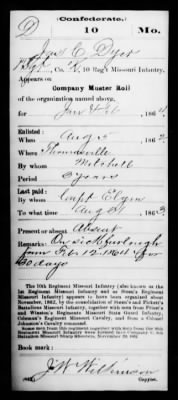 Confederate.
D 10 Mo.
Jas C Dyer
1 Sgt, Co. K, 10 Reg't Missouri Infantry.
Appears on
Company Muster Roll
of the organization named above,
for Jan & Feb, 1864.
Enlisted:
When Aug 5, 1862.
Where Thomasville
By whom Mitchell
Period 3 years
Last paid:
By whom Capt Elgin
To what time Aug 31, 1863.
Present or absent Absent
Remarks: On sick furlough
from Feb 12 1864 for
60 days
The 10th Regiment Missouri Infantry (also known as the
1st Regiment Missouri Infantry and as Steen's Regiment
Missouri Infantry) appears to have been organized about
November, 1862, by the consolidation of Steen's and Pickett's
Battalions Missouri Infantry, with two companies from
and Winston's Regiments Missouri State Guard Infantry,
Coleman's Regiment Missouri Cavalry, and from a Colonel
Johnson's Cavalry command.
Some men from this regiment together with men from the
Regiment Missouri Infantry were formed into Company
Battalion Missouri Sharp Shooters, November 29, 1862.
Book mark:
J W Wilkinson
Copyist.